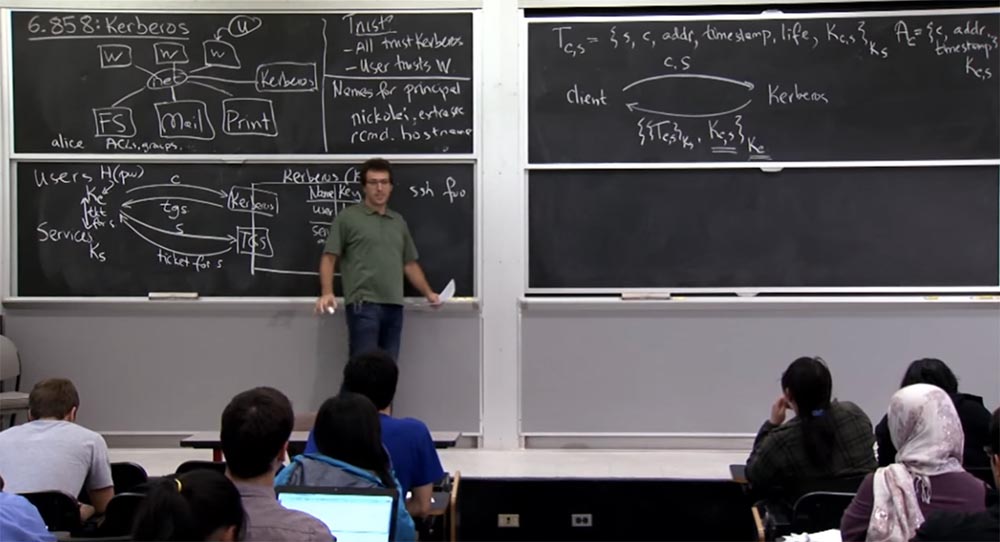 6.858: Kerberos
u
W W W
net
Kerberos
FS Mail Print
alice ACLs, groups.
Trust?
- All trust Kerberos
- User trusts W
Names for principal
nickolai, extra sec
rcmd. hostname
Users H(pw)
Kc
c
tgs
Kerberos
tkt
for s
s
Services
Ks
TGS
ticket for s
Kerberos (K
Name Key
user
ssh foo
Tc,s = { s, c, addr, timestamp, life, Kc,s }Ks
Ac = { c, addr,
timestamp }
Kc,s
c, s
client
Kerberos
{{Tc,s}Ks, Kc,s}Kc